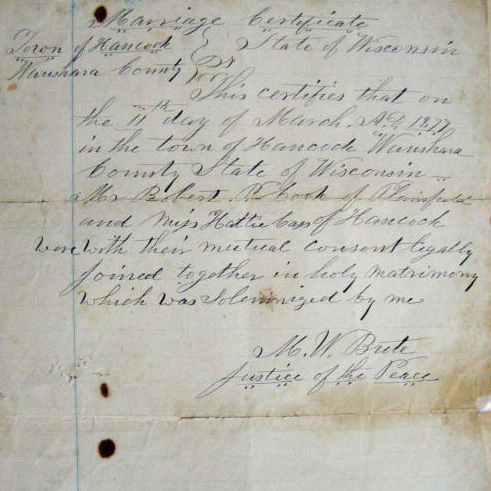 Marriage Certificate
Town of Hancock } State of Wisconsin
Waushara County }
This certifies that on
the 11th day of March. A.D. 1877
in the town of Hancock Waushara
County State of Wisconsin
Mr Robert P. Cook of Plainfield
and Miss Hattie of Hancock
were with their mutual consent legally
joined together in holy matrimony
which was Solemnized by me
M. W.
Justice of the Peace